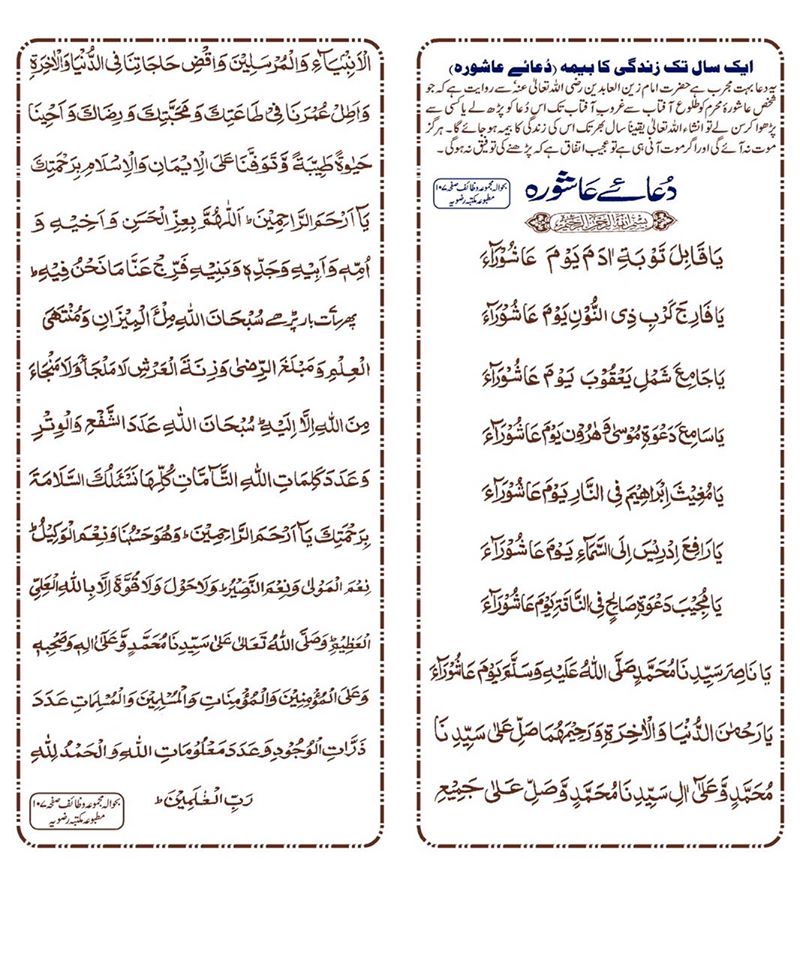 ایک سال تک زندگی کا بیمہ (دُعائے عاشورہ)
یہ دعا بہت مجرب ہے حضرت امام زین العابدین رضی اللہ تعالیٰ عنہٗ سے روایت ہے کہ جو
شخص عاشورۂ محرم کو طلوع آفتاب سے غروبِ آفتاب تک اس دُعا کو پڑھ لے یا کسی سے
پڑھوا کر سن لے تو انشاء اللہ تعالیٰ یقیناً سال بھر تک اس کی زندگی کا بیمہ ہو جائے گا۔ ہرگز
موت نہ آئے گی اور اگر موت آنی ہی ہے تو عجیب اتفاق ہے کہ پڑھنے کی توفیق نہ ہوگی۔
دُعائے عَاشورہ
بحوالہ مجموعہ وظائف صفحہ ۱۰۷
مطبوعہ مکتبہ رضویہ
بِسْمِ اللهِ الرَّحْمٰنِ الرَّحِيْمِ
يَا قَابِلَ تَوْبَةِ اٰدَمَ يَوْمَ عَاشُوْرَآءَ
يَا فَارِجَ كَرْبِ ذِى النُّوْنِ يَوْمَ عَاشُوْرَآءَ
يَا جَامِعَ شَمْلِ يَعْقُوْبَ يَوْمَ عَاشُوْرَآءَ
يَا سَامِعَ دَعْوَةِ مُوْسٰى وَهٰرُوْنَ يَوْمَ عَاشُوْرَآءَ
يَا مُغِيْثَ اِبْرَاهِيْمَ فِى النَّارِ يَوْمَ عَاشُوْرَآءَ
يَا رَافِعَ اِدْرِيْسَ اِلَى السَّمَآءِ يَوْمَ عَاشُوْرَآءَ
يَا مُجِيْبَ دَعْوَةِ صَالِحٍ فِى النَّاقَةِ يَوْمَ عَاشُوْرَآءَ
يَا نَاصِرَ سَيِّدِنَا مُحَمَّدٍ صَلَّى اللهُ عَلَيْهِ وَسَلَّمَ يَوْمَ عَاشُوْرَآءَ
يَا رَحْمٰنَ الدُّنْيَا وَالْاٰخِرَةِ وَرَحِيْمَهُمَا صَلِّ عَلٰى سَيِّدِنَا
مُحَمَّدٍ وَّعَلٰٓى اٰلِ سَيِّدِنَا مُحَمَّدٍ وَّصَلِّ عَلٰى جَمِيْعِ
الْاَنْبِيَآءِ وَالْمُرْسَلِيْنَ وَاقْضِ حَاجَاتِنَا فِى الدُّنْيَا وَالْاٰخِرَةِ
وَاَطِلْ عُمُرَنَا فِىْ طَاعَتِكَ وَمَحَبَّتِكَ وَرِضَاكَ وَاَحْيِنَا
حَيٰوةً طَيِّبَةً وَّتَوَفَّنَا عَلَى الْاِيْمَانِ وَالْاِسْلَامِ بِرَحْمَتِكَ
يَآ اَرْحَمَ الرَّاحِمِيْنَ ؕ اَللّٰهُمَّ بِعِزِّ الْحَسَنِ وَاَخِيْهِ وَ
اُمِّهٖ وَاَبِيْهِ وَجَدِّهٖ وَبَنِيْهِ فَرِّجْ عَنَّا مَا نَحْنُ فِيْهِ ؕ
پھر سات بار پڑھے سُبْحَانَ اللهِ مِلْءَ الْمِيْزَانِ وَمُنْتَهَى
الْعِلْمِ وَمَبْلَغَ الرِّضٰى وَزِنَةَ الْعَرْشِ لَا مَلْجَاَ وَلَا مَنْجَاءَ
مِنَ اللهِ اِلَّا اِلَيْهِ ؕ سُبْحَانَ اللهِ عَدَدَ الشَّفْعِ وَالْوِتْرِ
وَعَدَدَ كَلِمَاتِ اللهِ التَّآمَّاتِ كُلِّهَا نَسْئَلُكَ السَّلَامَةَ
بِرَحْمَتِكَ يَآ اَرْحَمَ الرَّاحِمِيْنَ ؕ وَهُوَ حَسْبُنَا وَنِعْمَ الْوَكِيْلُ ؕ
نِعْمَ الْمَوْلٰى وَنِعْمَ النَّصِيْرُ ؕ وَلَا حَوْلَ وَلَا قُوَّةَ اِلَّا بِاللهِ الْعَلِىِّ
الْعَظِيْمِ ؕ وَصَلَّى اللهُ تَعَالٰى عَلٰى سَيِّدِنَا مُحَمَّدٍ وَّعَلٰٓى اٰلِهٖ وَصَحْبِهٖ
وَعَلَى الْمُؤْمِنِيْنَ وَالْمُؤْمِنَاتِ وَالْمُسْلِمِيْنَ وَالْمُسْلِمَاتِ عَدَدَ
ذَرَّاتِ الْوُجُوْدِ وَعَدَدَ مَعْلُوْمَاتِ اللهِ وَالْحَمْدُ لِلّٰهِ
رَبِّ الْعٰلَمِيْنَ ؕ
بحوالہ مجموعہ وظائف صفحہ ۱۰۷
مطبوعہ مکتبہ رضویہ